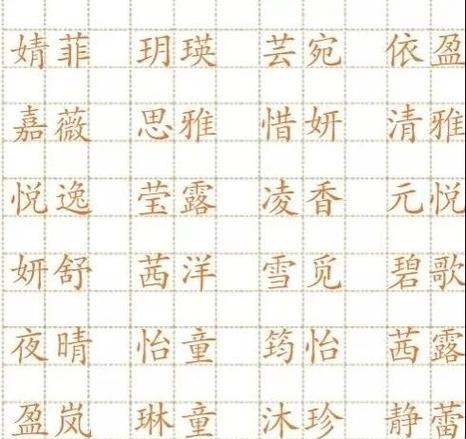 婧菲 玥瑛 芸宛 依盈
嘉薇 思雅 惜妍 清雅
悦逸 莹露 凌香 元悦
妍舒 茜洋 雪觅 碧歌
夜晴 怡童 筠怡 茜露
盈岚 琳童 沐珍 静蕾